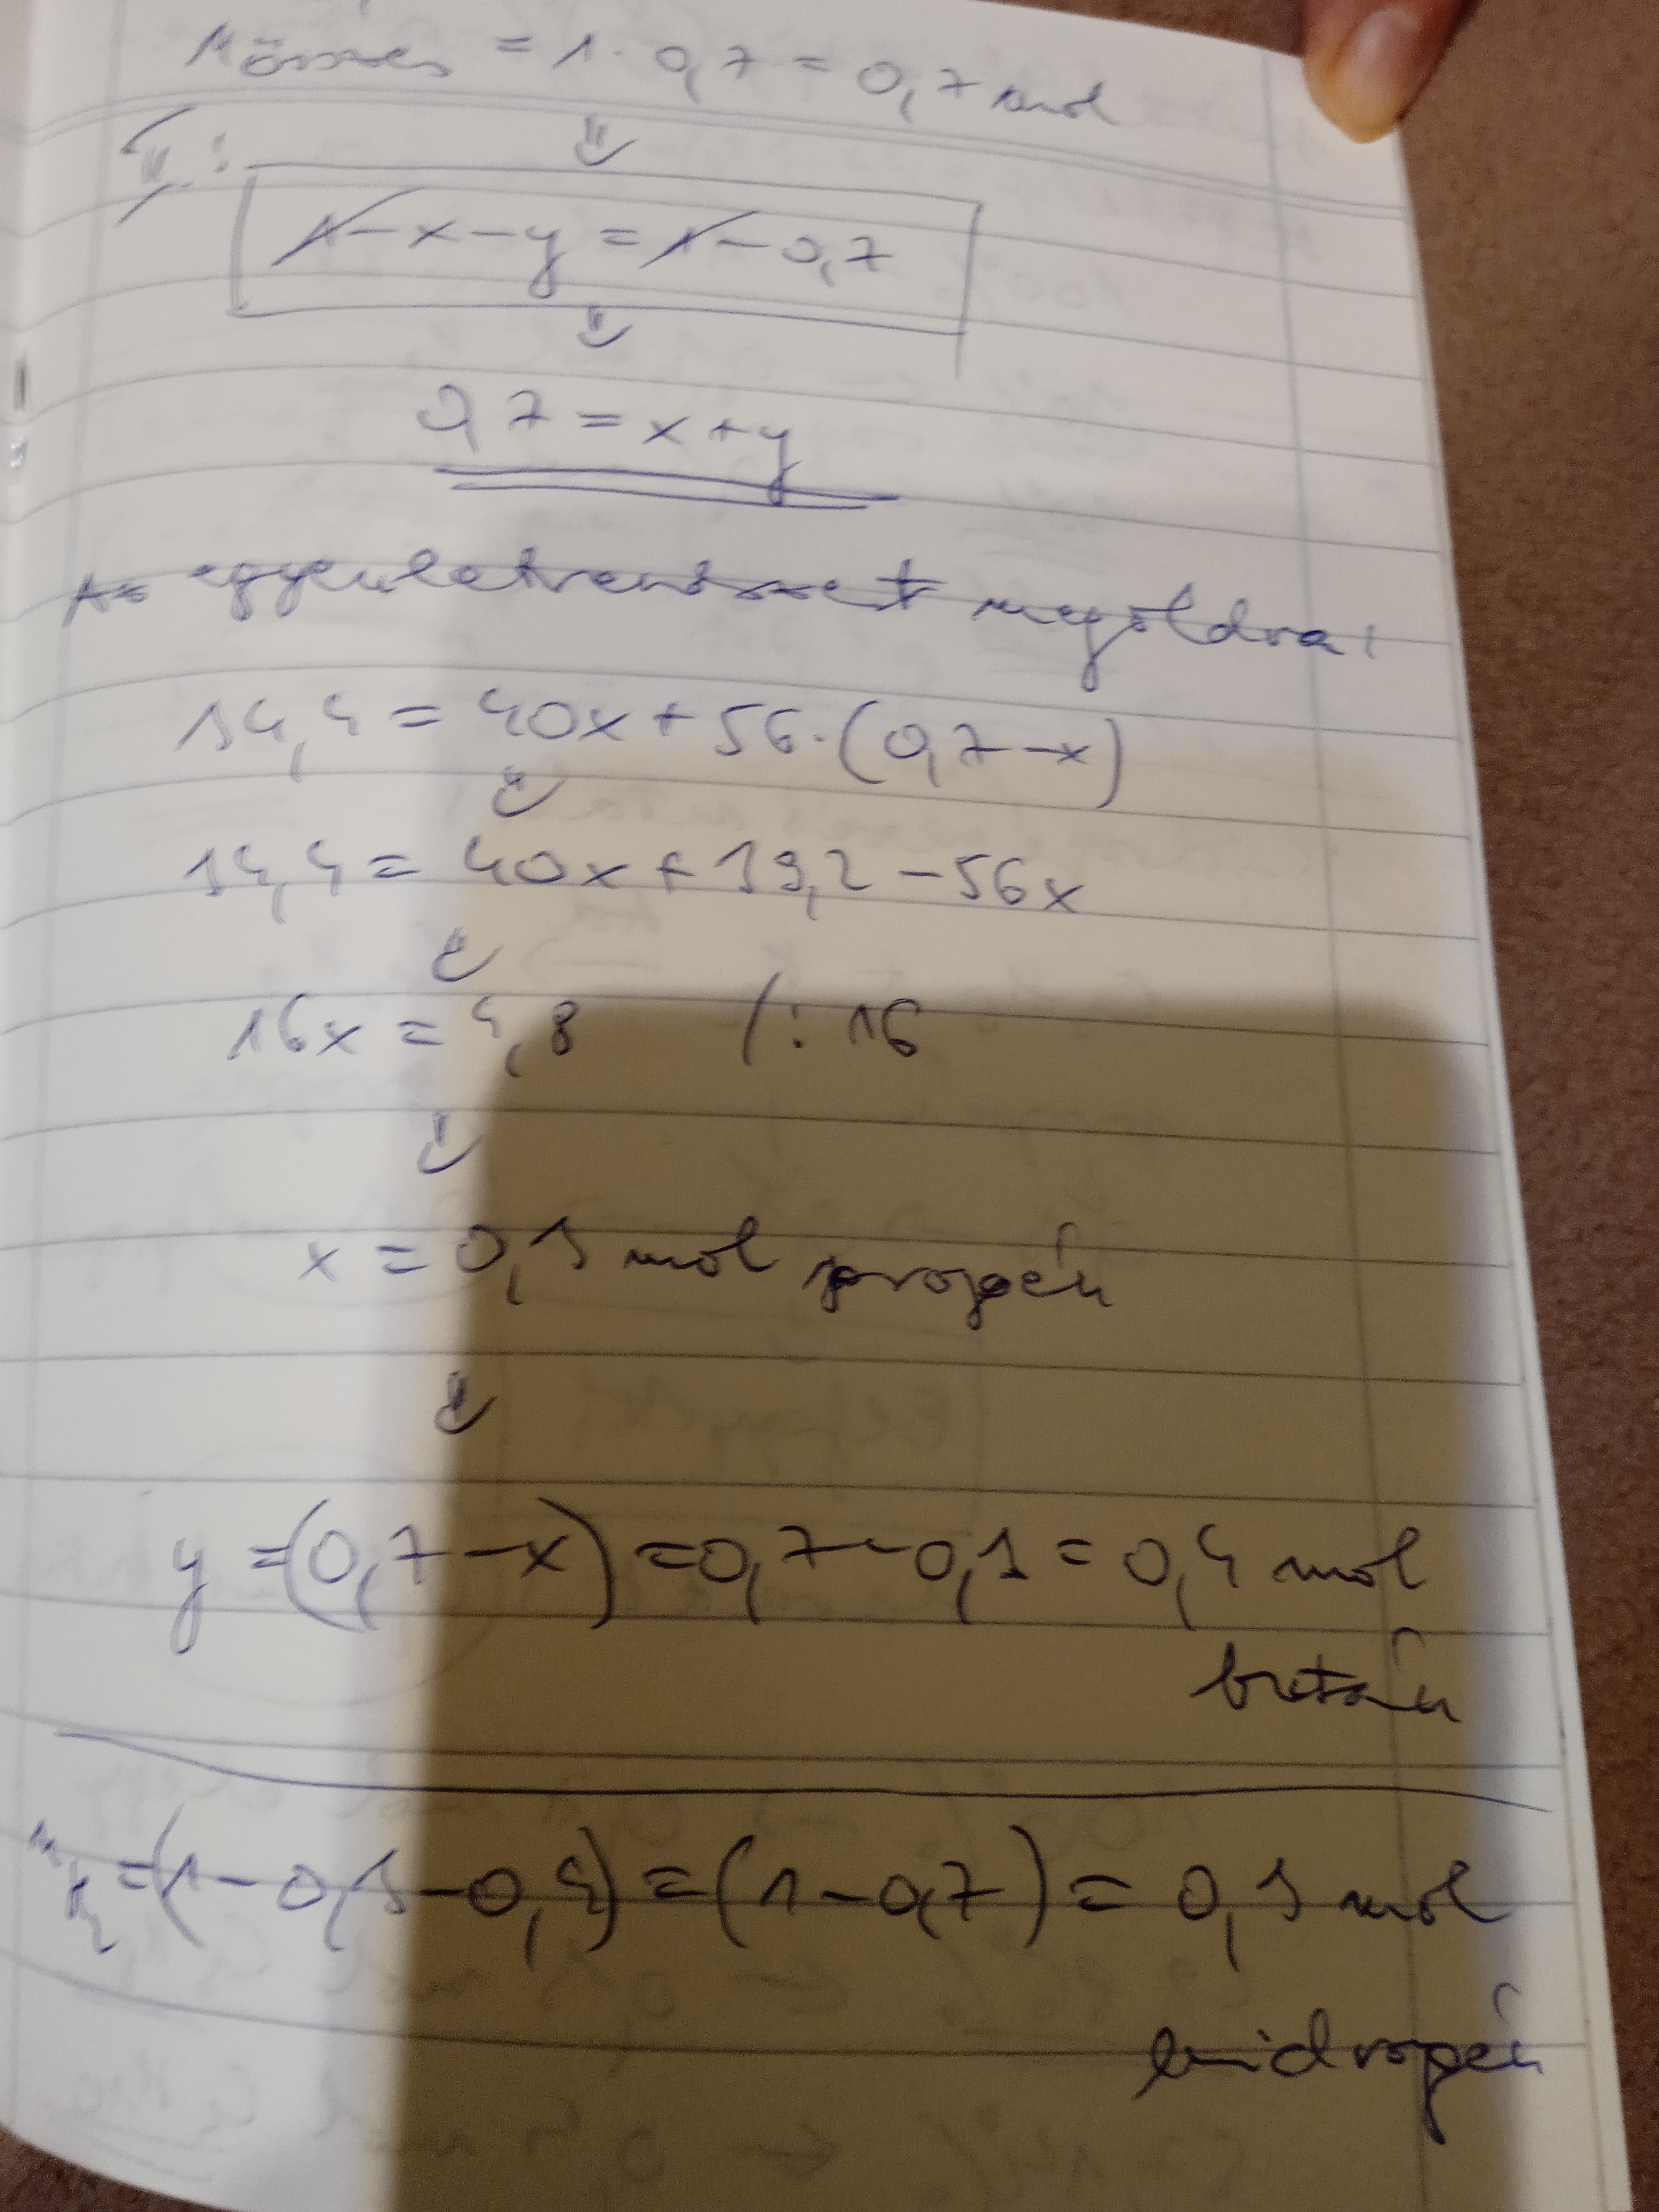 n összes = 1 · 0,7 = 0,7 mol
II.:
⇓
1 - x - y = 1 - 0,7
⇓
0,7 = x + y
Az egyenletrendszert megoldva:
34,4 = 40x + 56 · (0,7 - x)
⇓
34,4 = 40x + 39,2 - 56x
⇓
16x = 4,8 /: 16
⇓
x = 0,3 mol propén
⇓
y = (0,7 - x) = 0,7 - 0,3 = 0,4 mol
bután
n H₂ = (1 - 0,3 - 0,4) = (1 - 0,7) = 0,3 mol
hidrogén